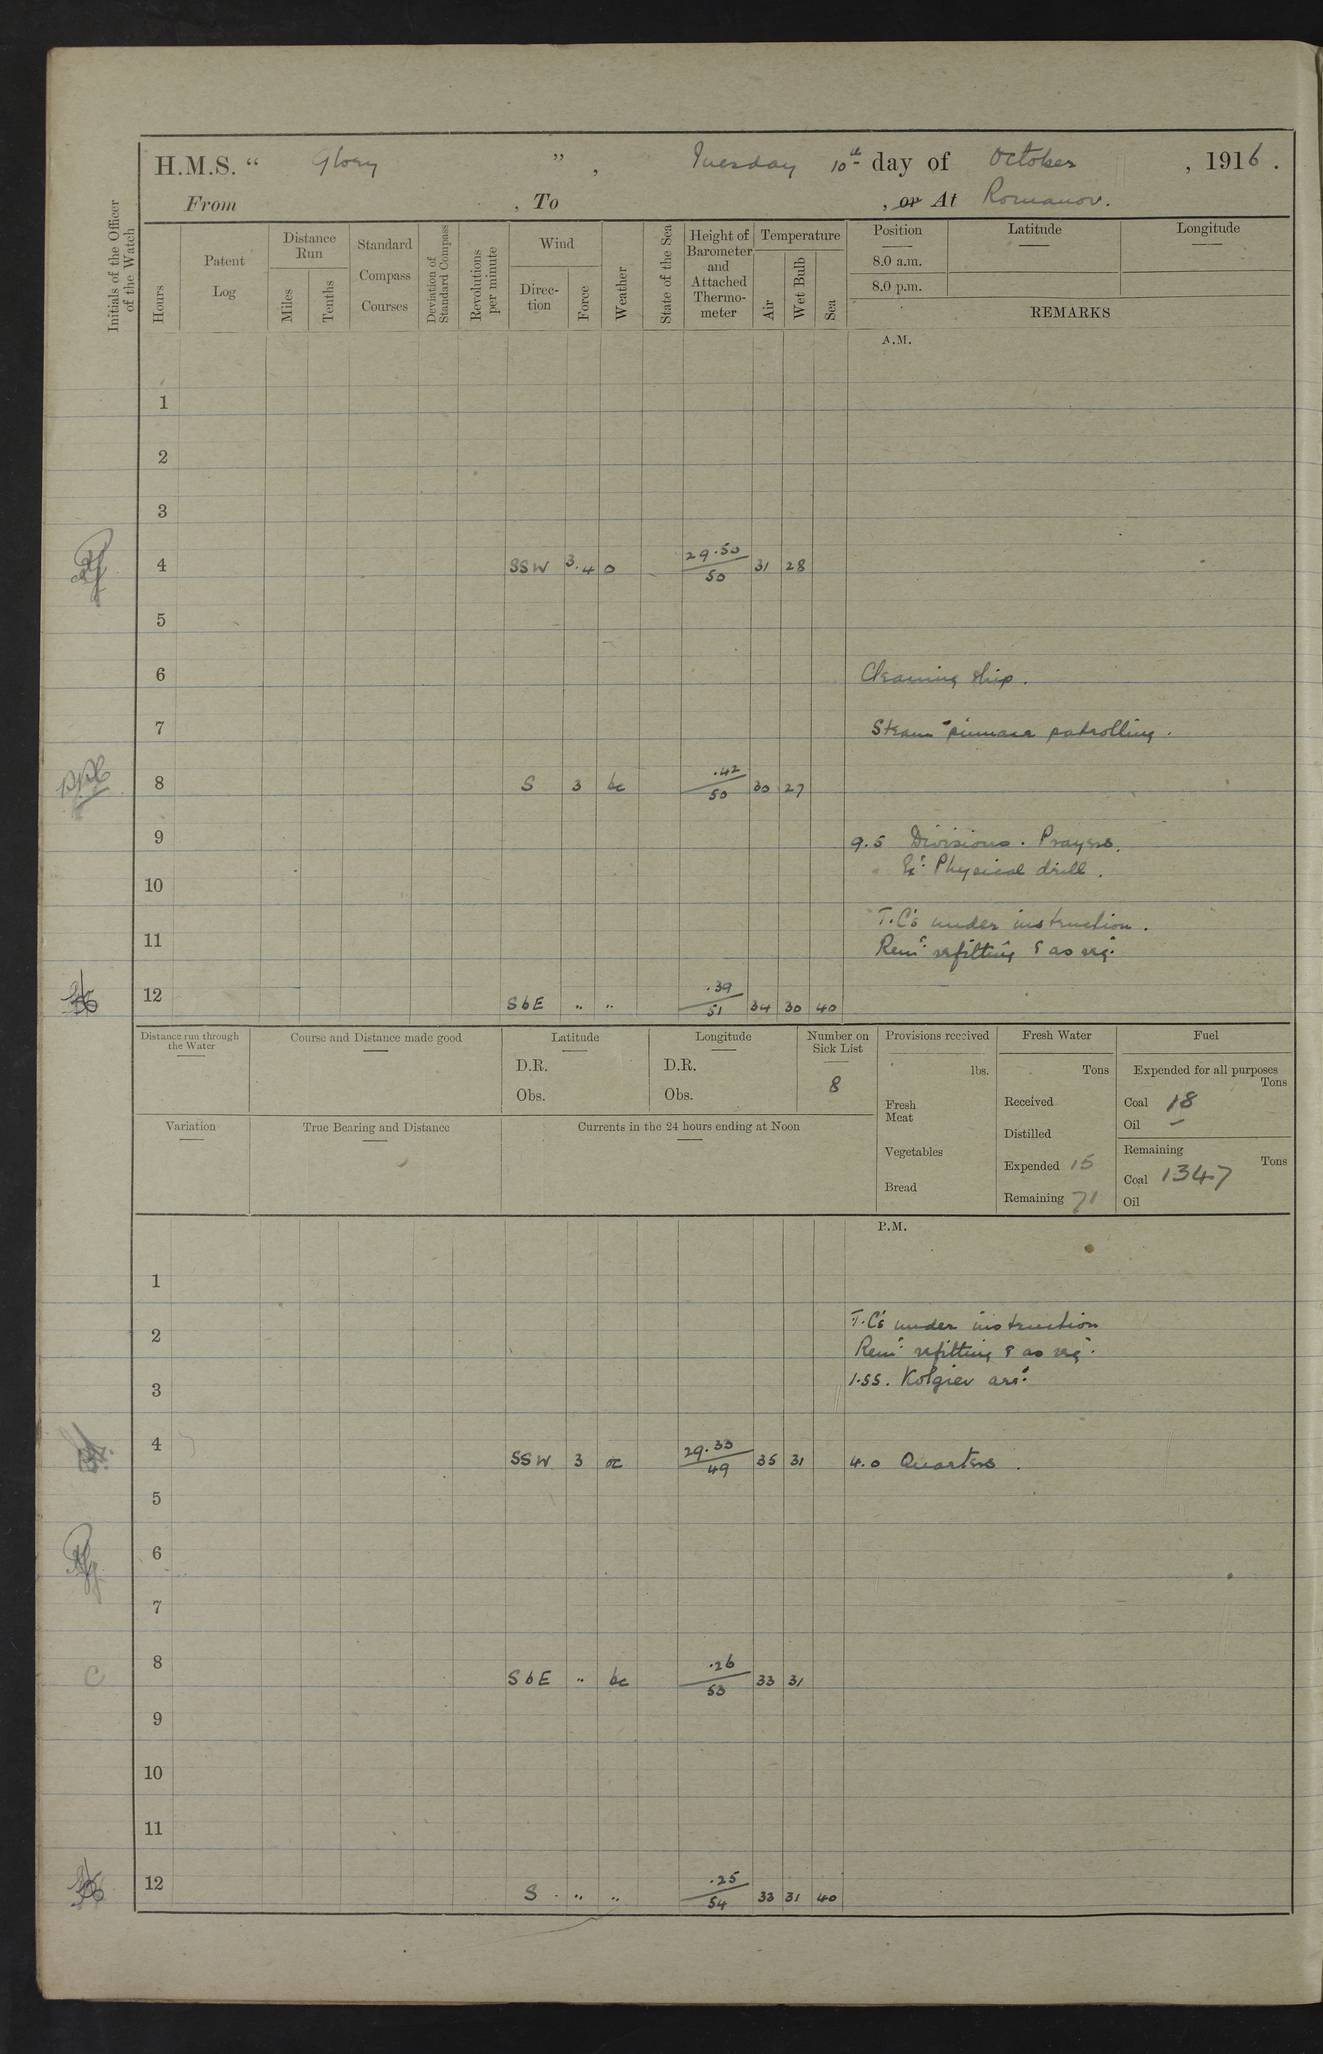 H.M.S. “ Glory ”, Tuesday 10th day of October, 1916.
From , To , or At Romanov.
Initials of the Officer of the Watch
Hours
Patent Log
Distance Run
Miles
Tenths
Standard Compass Courses
Deviation of Standard Compass
Revolutions per minute
Wind
Direction
Force
Weather
State of the Sea
Height of Barometer and Attached Thermometer
Temperature
Air
Wet Bulb
Sea
Position
Latitude
Longitude
8.0 a.m.
8.0 p.m.
REMARKS
A.M.
1
2
3
4 SSW 3.4 o 29.50/50 31 28
5
6 Cleaning ship.
7 Steam pinnace patrolling.
8 S 3 bc .42/50 30 27
9 9.5 Divisions. Prayers.
Physical drill.
10
T.C's under instruction.
11 Remr refitting & as reqr
12 SbE " " .39/51 34 30 40
Distance run through the Water
Course and Distance made good
Latitude
D.R.
Obs.
Longitude
D.R.
Obs.
Number on Sick List
8
Provisions received
lbs.
Fresh Meat
Vegetables
Bread
Fresh Water
Tons
Received
Distilled
Expended 15
Remaining 71
Fuel
Expended for all purposes
Tons
Coal 18
Oil –
Remaining
Tons
Coal 1347
Oil
Variation
True Bearing and Distance
Currents in the 24 hours ending at Noon
P.M.
1
T.C's under instruction
2 Remr refitting & as reqr
3 1.55. Kolgiev arrd
4 SSW 3 oc 29.33/49 35 31 4.0 Quarters.
5
6
7
8 SbE " bc .26/53 33 31
9
10
11
12 S " " .25/54 33 31 40